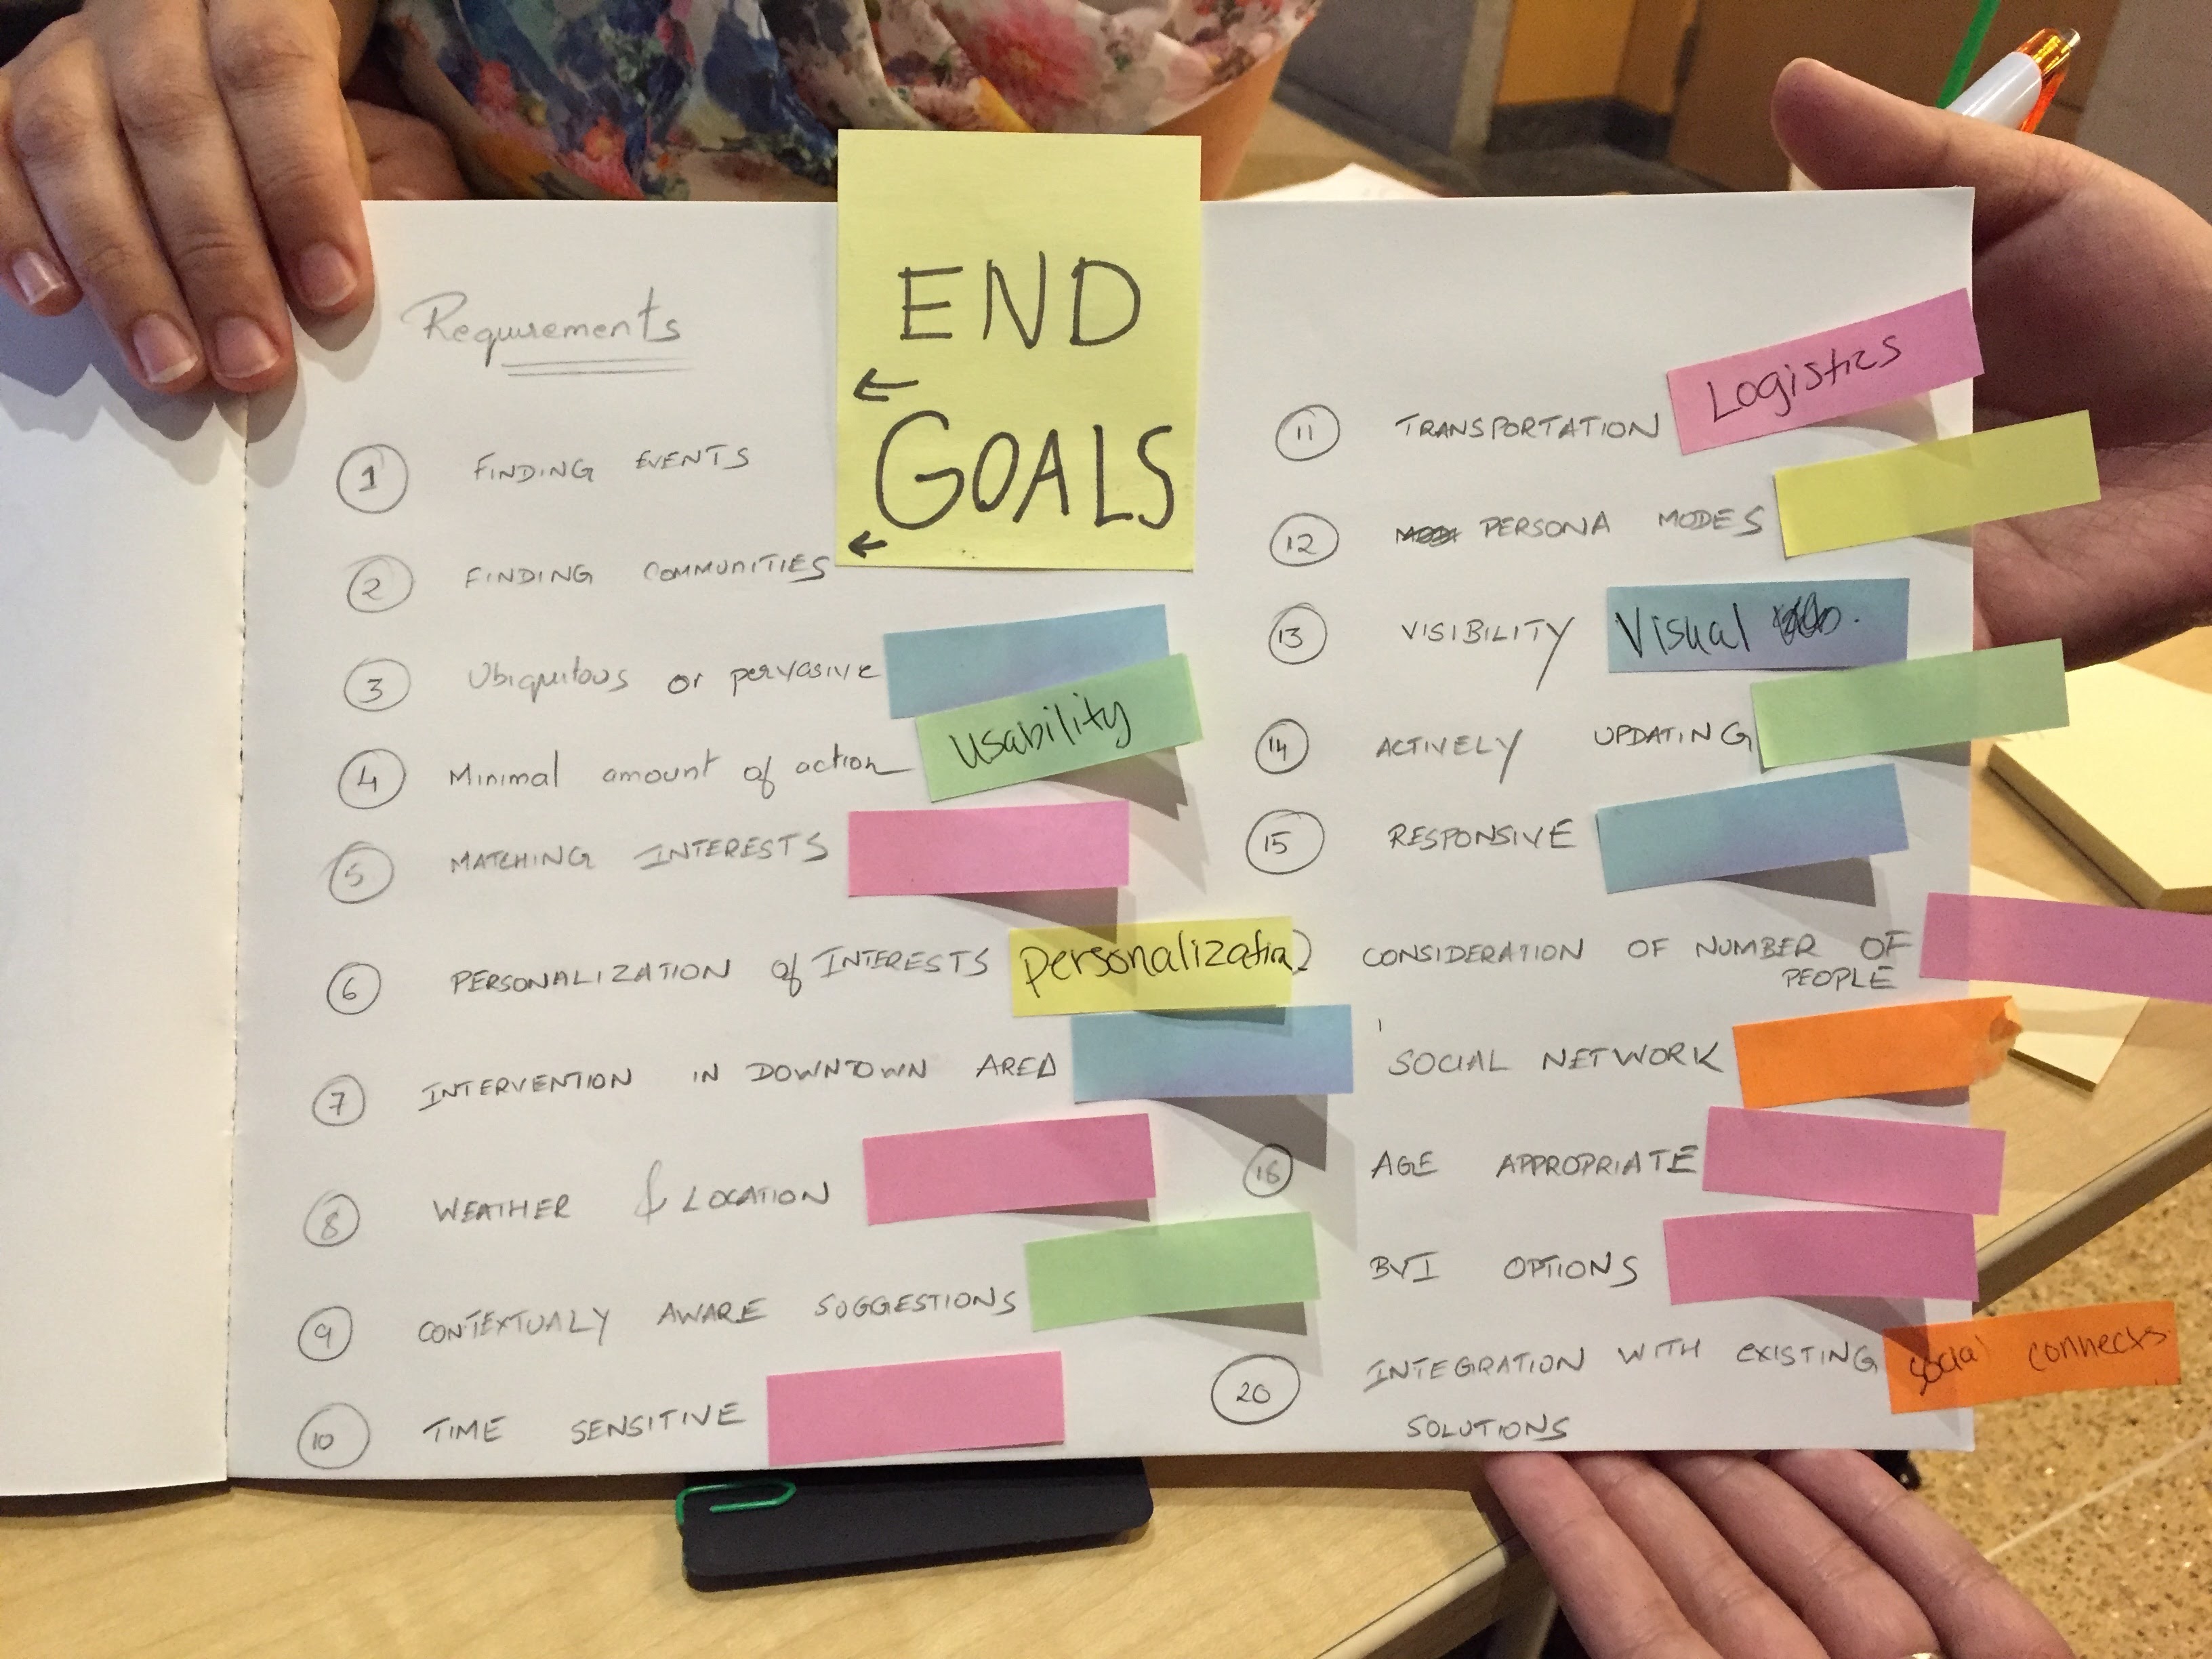 Requirements
END
←
GOALS
←
1 FINDING EVENTS
2 FINDING COMMUNITIES
3 Ubiquitous or pervasive
4 Minimal amount of action usability
5 MATCHING INTERESTS
6 PERSONALIZATION of INTERESTS personalization
7 INTERVENTION IN DOWNTOWN AREA
8 WEATHER & LOCATION
9 CONTEXTUALY AWARE SUGGESTIONS
10 TIME SENSITIVE
11 TRANSPORTATION Logistics
12 PERSONA MODES
13 VISIBILITY Visual
14 ACTIVELY UPDATING
15 RESPONSIVE
CONSIDERATION OF NUMBER OF
PEOPLE
SOCIAL NETWORK
18 AGE APPROPRIATE
BVI OPTIONS
20 INTEGRATION WITH EXISTING social connects
SOLUTIONS